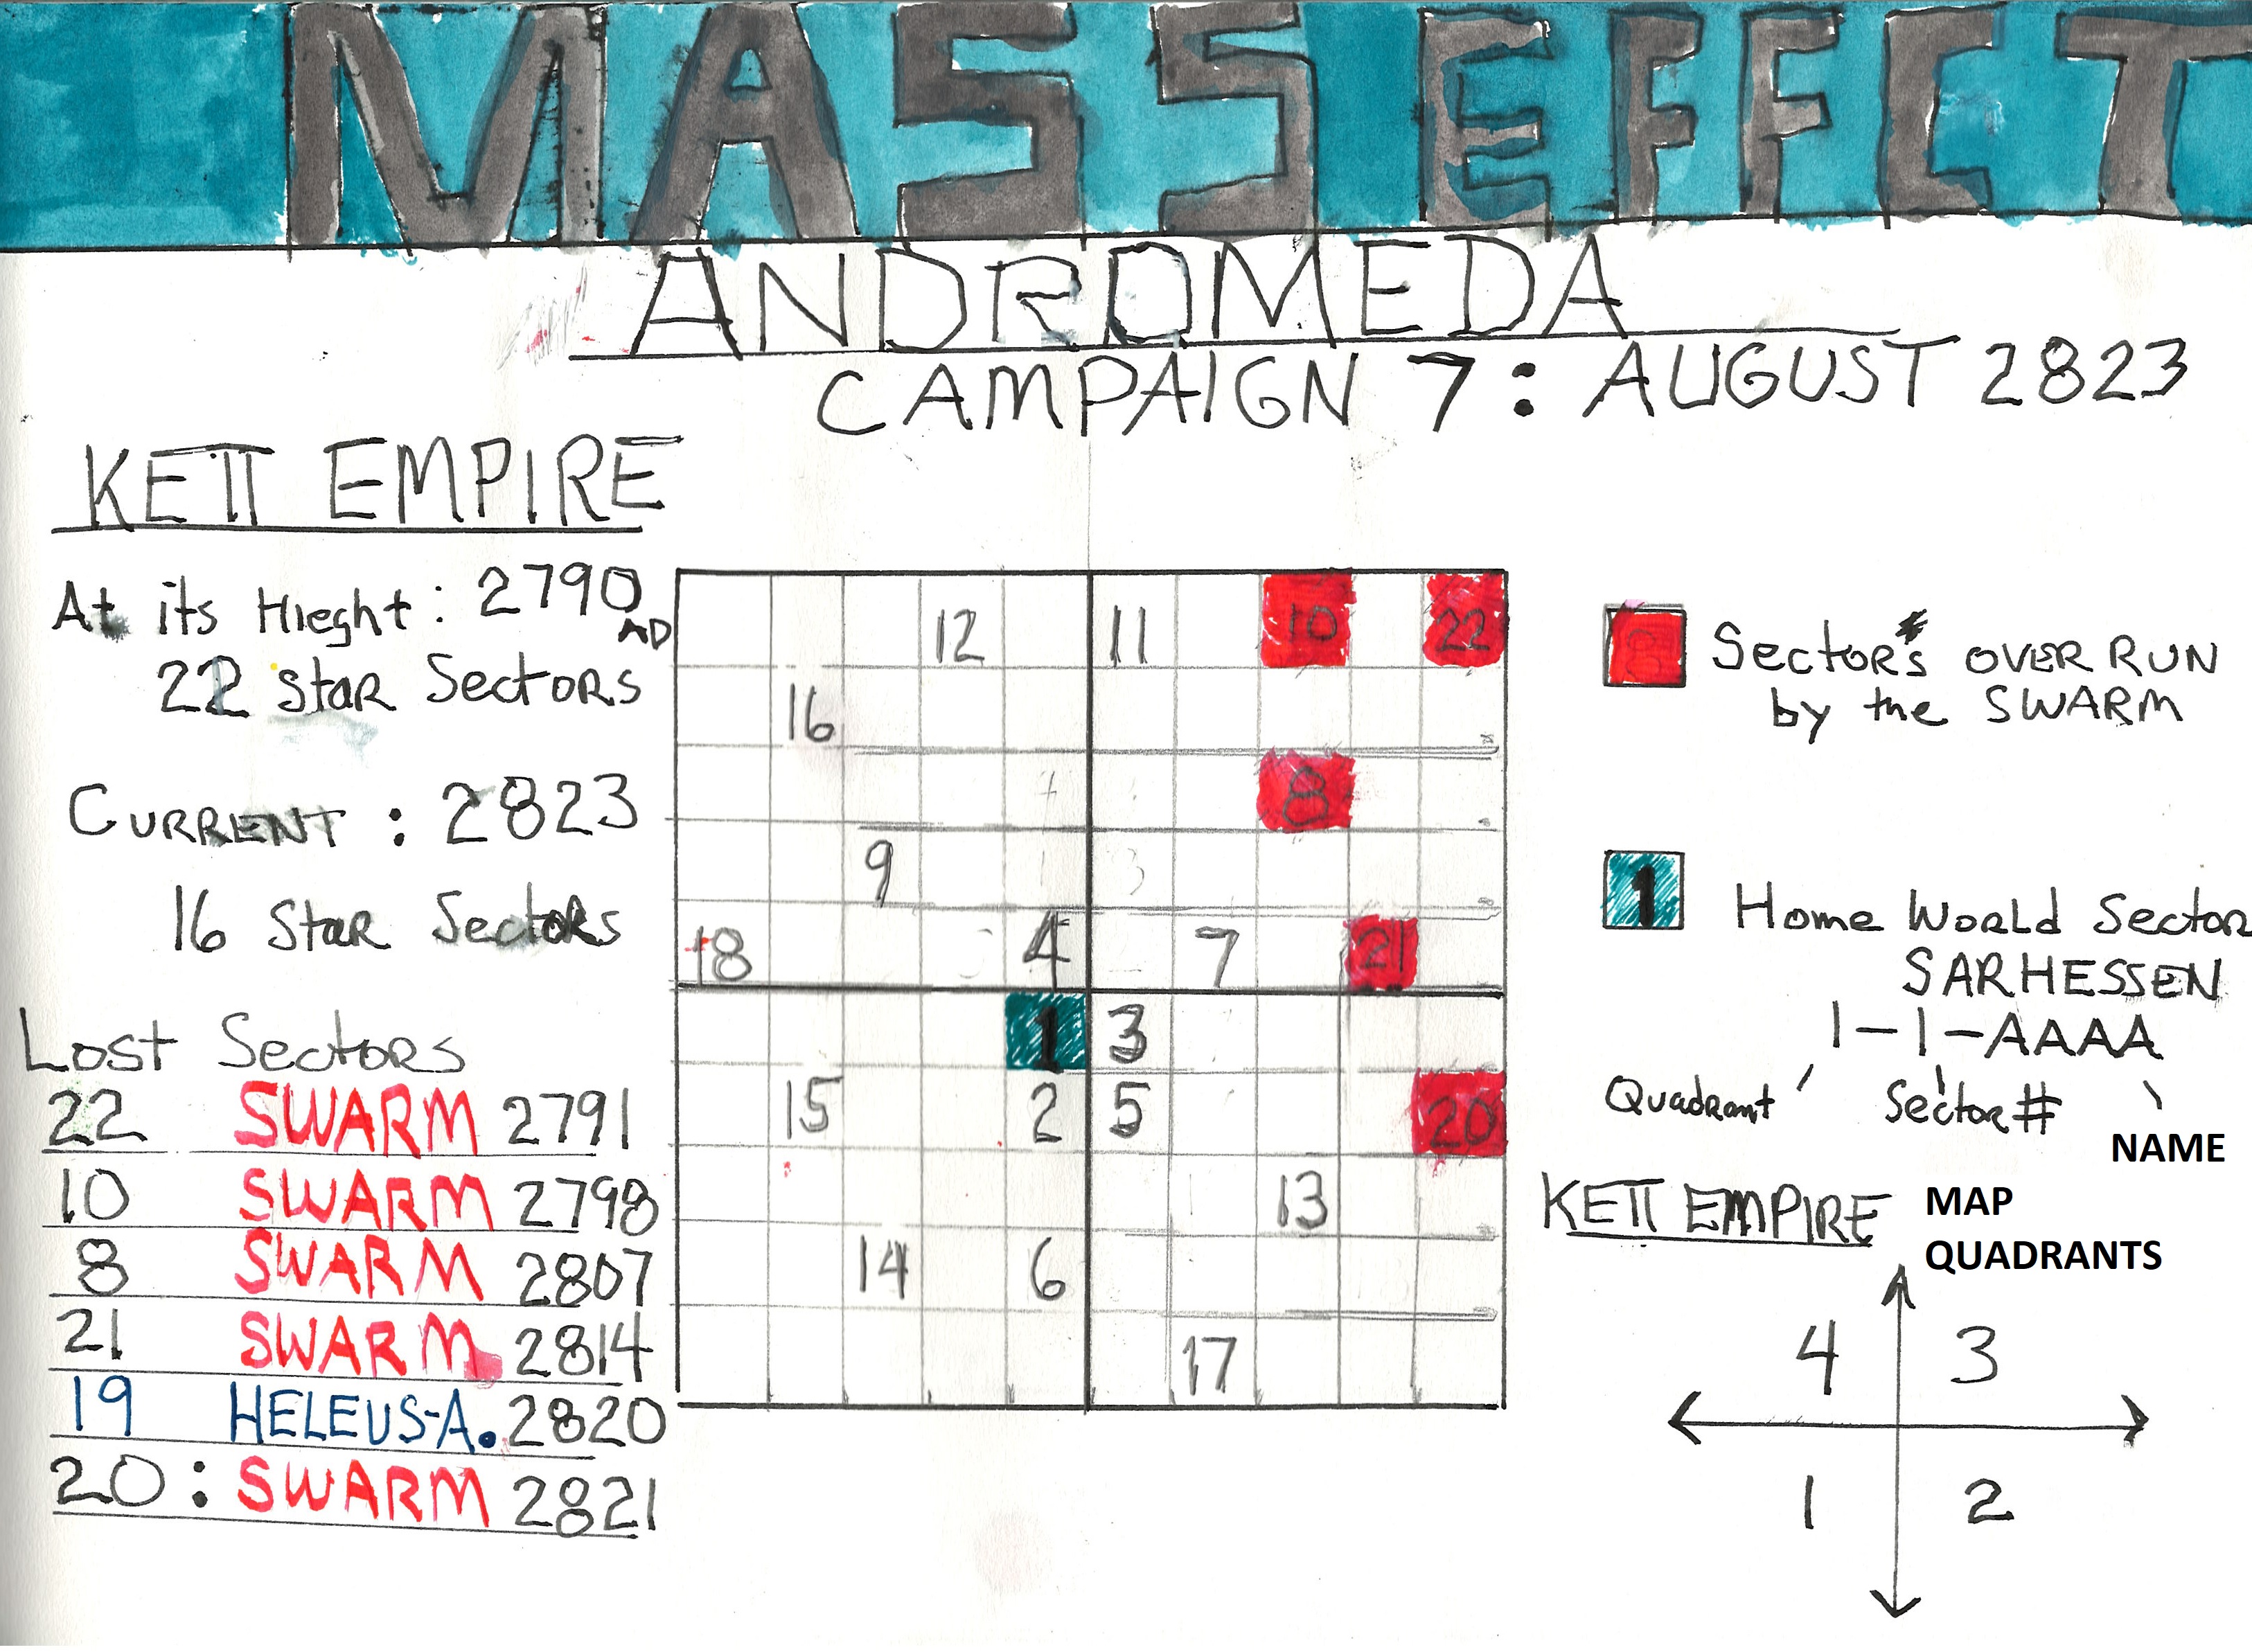 MASS EFFECT
ANDROMEDA
CAMPAIGN 7: AUGUST 2823
KETT EMPIRE
At its Hieght: 2790
AD
22 Star Sectors
CURRENT : 2823
16 Star Sectors
Lost Sectors
22 SWARM 2791
10 SWARM 2798
8 SWARM 2807
21 SWARM 2814
19 HELEUS-A. 2820
20: SWARM 2821
12 11 10 22
16
8
9 3
18 4 7 21
1 3
15 2 5 20
13
14 6
17
Sectors OVER RUN
by the SWARM
1 Home World Sector
SARHESSEN
1-1-AAAA
Quadrant Sector#
NAME
KETT EMPIRE MAP
QUADRANTS
4 3
1 2